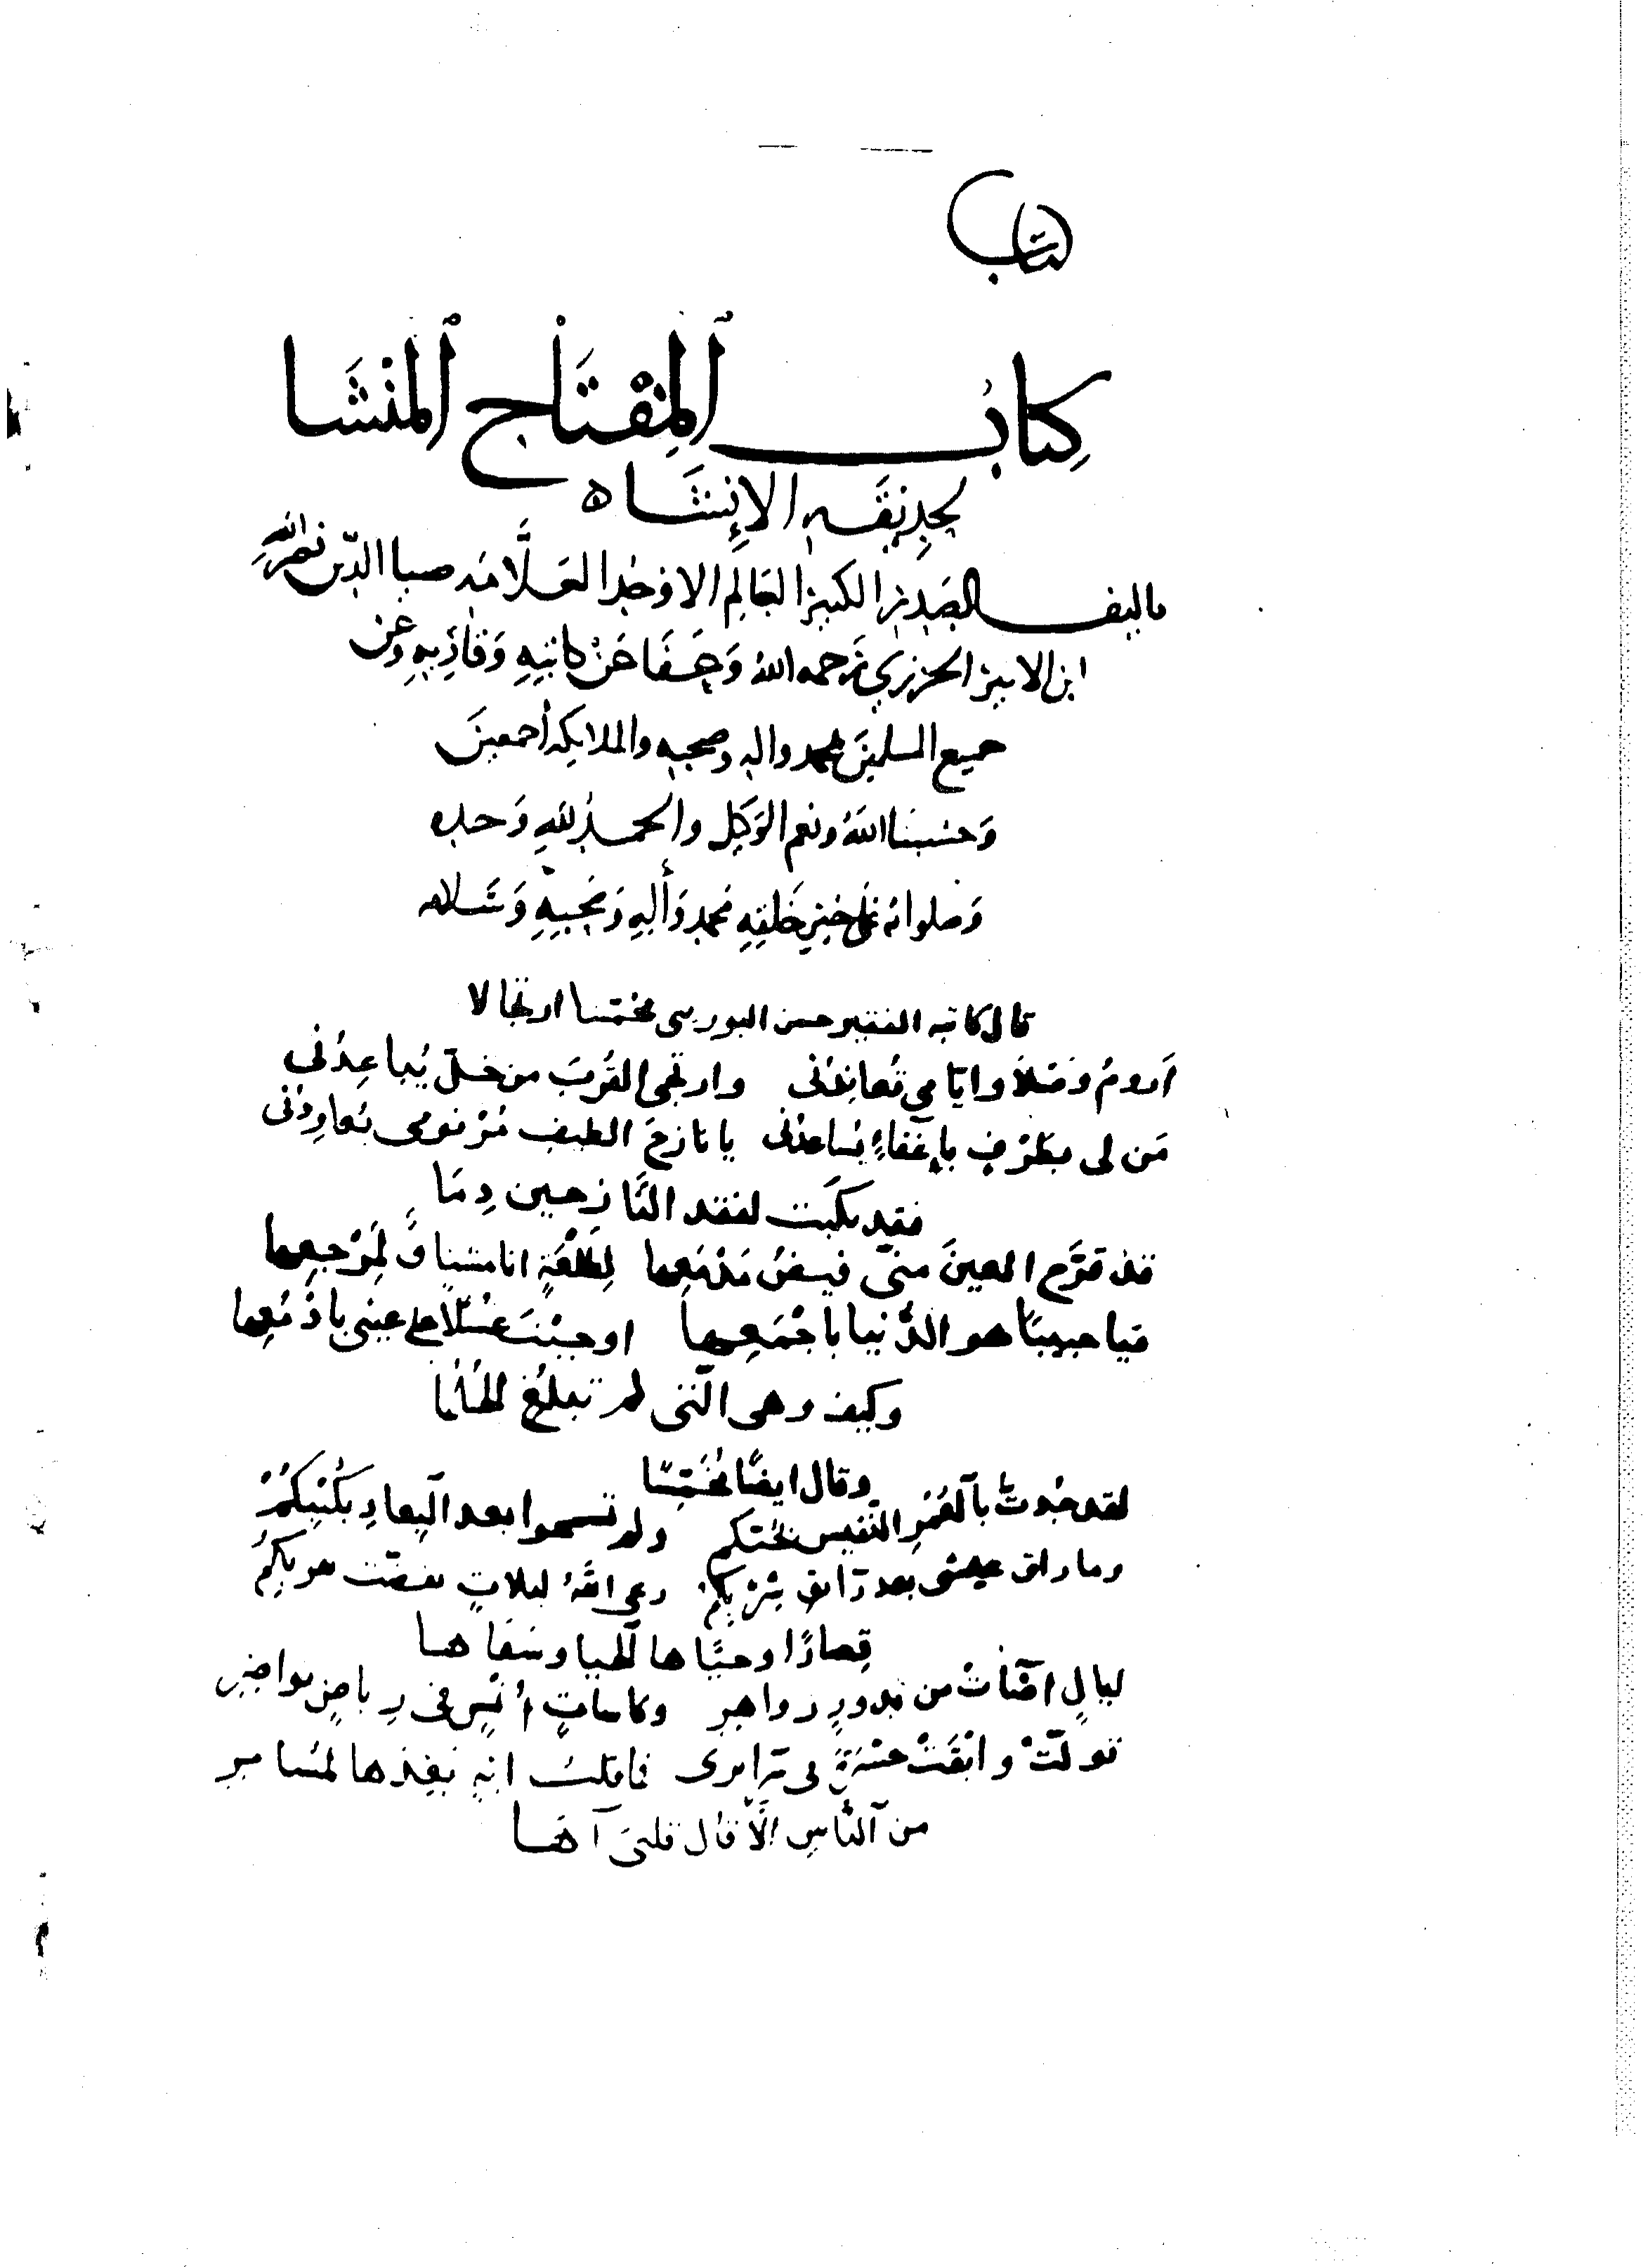 كتاب
كتاب المفتاح المنشا
لحديقة الإنشاء
تاليف الصدر الكبير العالم الاوحد العلامة ضيا الدين نصر الله
ابن الاثير الجزري رحمه الله وعفا عن كاتبه وقاريه وعن
جميع المسلمين بمحمد واله وصحبه والملايكة أجمعين
وحسبنا الله ونعم الوكيل والحمد لله وحده
وصلواته على خير خلقه محمد وآله وصحبه وسلامه
قال كاتبه الفقير حسن البوريني مخمسا ارتجالا
أروم وصلا وايامي تعاندني وارتجي القرب من خل يباعدني
من لي بطرف بإغفاء يساعدني يا نازح الطيف مر نومي يعاودني
فقد بكيت لفقد النازحين دما
قد قرح العين مني فيض مدمعها لطلعة انا مشتاق لمرجعها
فيا حبيبا هو الدنيا باجمعها اوجبت غسلا على عيني بادمعها
وكيف وهي التي لم تبلغ الحلما
وقال ايضا مخمسا
لقد جدت بالعمر النفيس بحبكم ولم تسمحوا بعد البعاد بكتبكم
وما راق عيشي بعد رائق شربكم رعى الله ليلات تقضت بقربكم
قصارا وحياها الحيا وسقاها
ليال اضات من بدور زواهر وكاسات أنس في رياض نواضر
تولت وابقت حسرة في سرايري فما قلت ايه بعدها لمسامر
من الناس الا قال قلبي آها